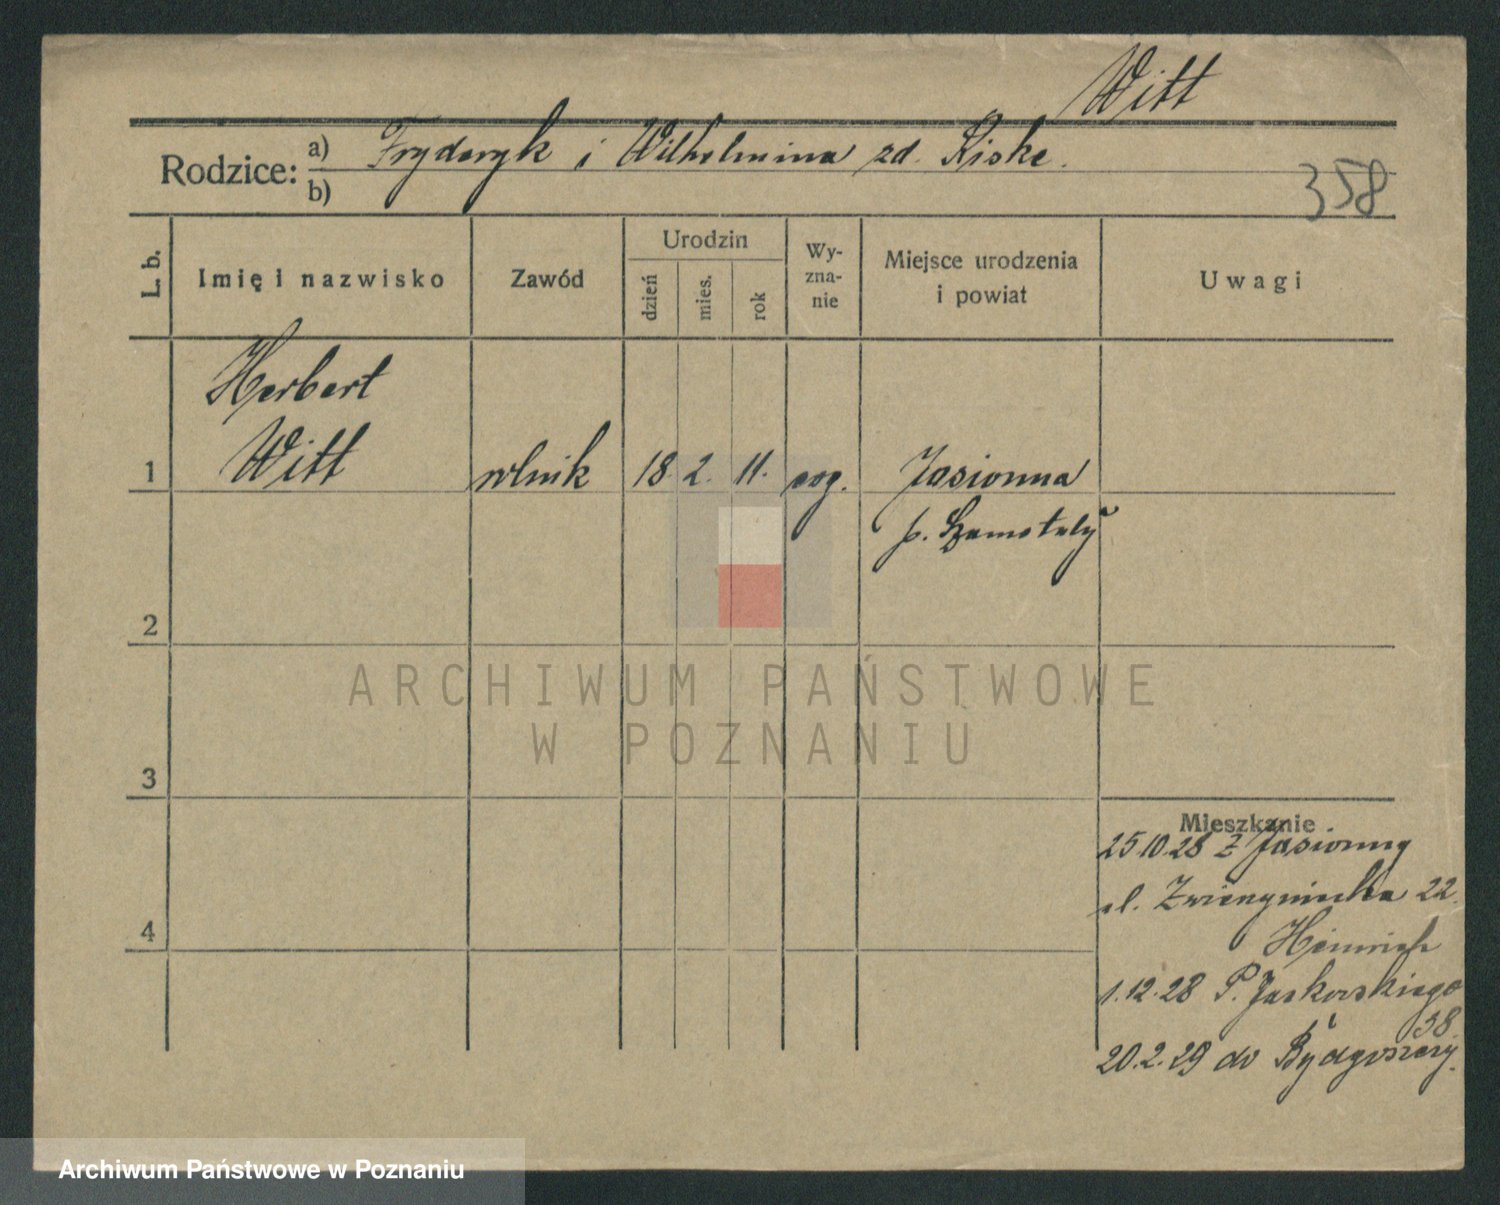 Witt
Rodzice: a) Fryderyk i Wilhelmina zd. Kiske.
b)
358
L. b.
Imię i nazwisko
Zawód
Urodzin
dzień
mies.
rok
Wy-
zna-
nie
Miejsce urodzenia
i powiat
Uwagi
Herbert
1 Witt rolnik 18. 2. 11. ewg. Jasionna
p. Szamotuły
2
3
4
Mieszkanie
25.10.28 z Jasionny
ul. Zwierzyniecka 22.
Heinrich
1.12.28 P. Jackowskiego
38.
20.2.29 do Bydgoszczy.
ARCHIWUM PAŃSTWOWE
W POZNANIU
Archiwum Państwowe w Poznaniu